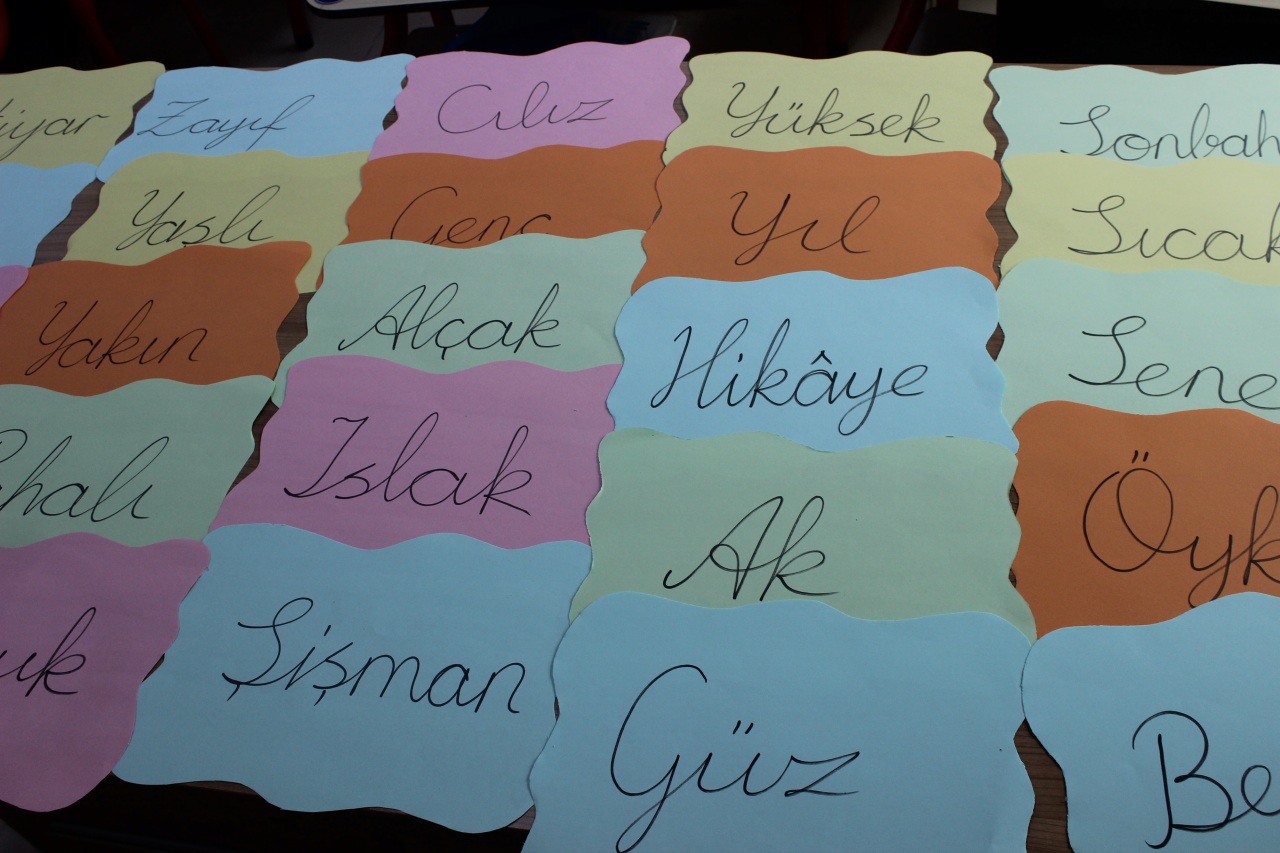 Zayıf
Cılız
Yüksek
Sonbah
Yaşlı
Genç
Yıl
Sıcak
Yakın
Alçak
Hikâye
Sene
Islak
Ak
Öyk
Şişman
Güz
Be